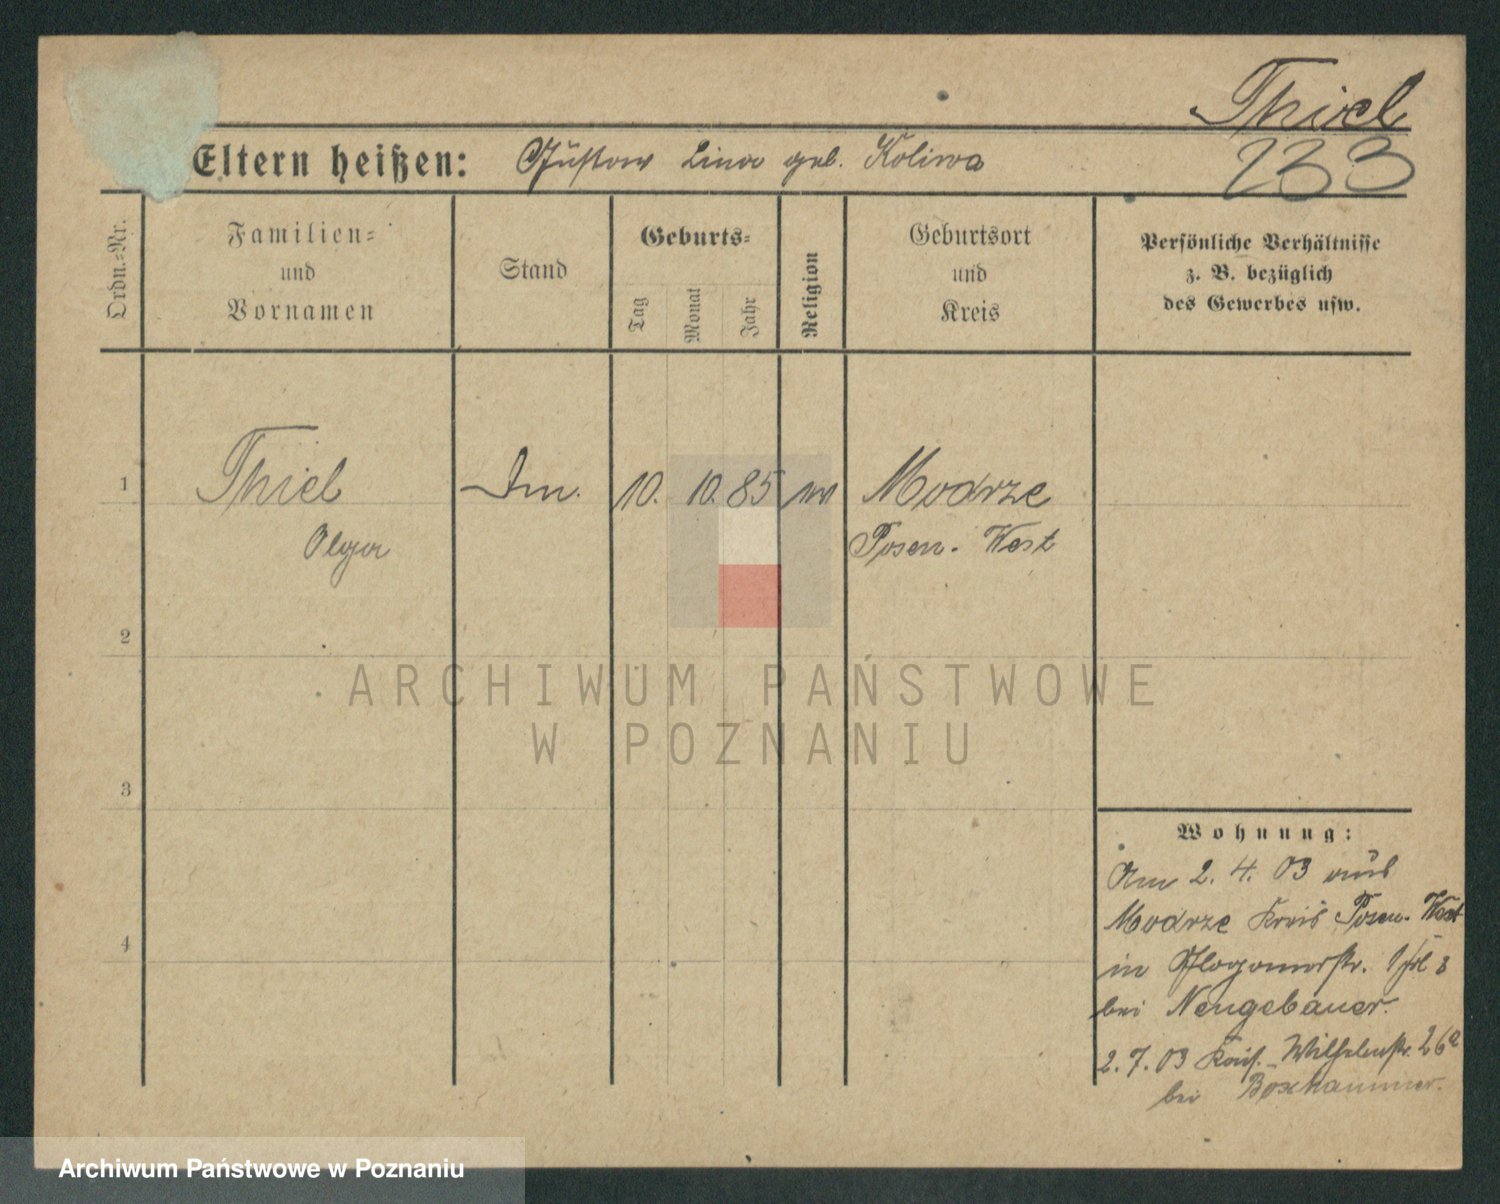 Thiel
233
Eltern heißen: Gustav Lina geb. Koliwa
Ordn.-Nr.
Familien-
und
Vornamen
Stand
Geburts-
Tag
Monat
Jahr
Religion
Geburtsort
und
Kreis
Persönliche Verhältnisse
z. B. bezüglich
des Gewerbes usw.
1 Thiel 10. 10. 85 Modrze
Olga Posen. West
2
3
4
ARCHIWUM PAŃSTWOWE
W POZNANIU
Wohnung:
Am 2. 4. 03 aus
Modrze Kreis Posen. West
in Glogauerstr.
bei Neugebauer.
2. 7. 03 Kais. Wilhelmstr. 26a
bei
Archiwum Państwowe w Poznaniu